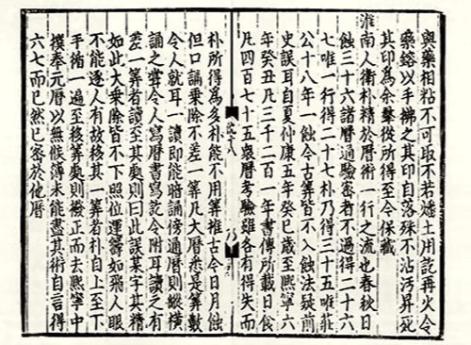 與藥相粘不可取不若燔土用訖再火令
藥鎔以手拂之其印自落殊不沾汚昇死
其印為余羣從所得至今保藏
淮南人衛朴精於曆術一行之流也春秋日
蝕三十六諸曆通驗密者不過得二十六
七唯一行得二十七朴乃得三十五唯莊
公十八年一蝕今古算皆不入蝕法疑前
史誤耳自夏仲康五年癸巳歲至熙寧六
年癸丑凡三千二百一年書傳所載日食
凡四百七十五衆曆考驗雖各有得失而
朴所得為多朴能不用算推古今日月蝕
但口誦乗除不差一算凡大曆悉是算數
令人就耳一讀即能暗誦傍通曆則縱橫
誦之嘗令人寫曆書寫訖令附耳讀之有
差一算者讀至其處則曰此誤某字其精
如此大乗除皆不下照位運籌如飛人眼
不能逐人有故移其一算者朴自上至下
手循一遍至移算處則撥正而去熙寧中
撰奉元曆以無候簿未能盡其術自言得
六七而已然已密於他曆